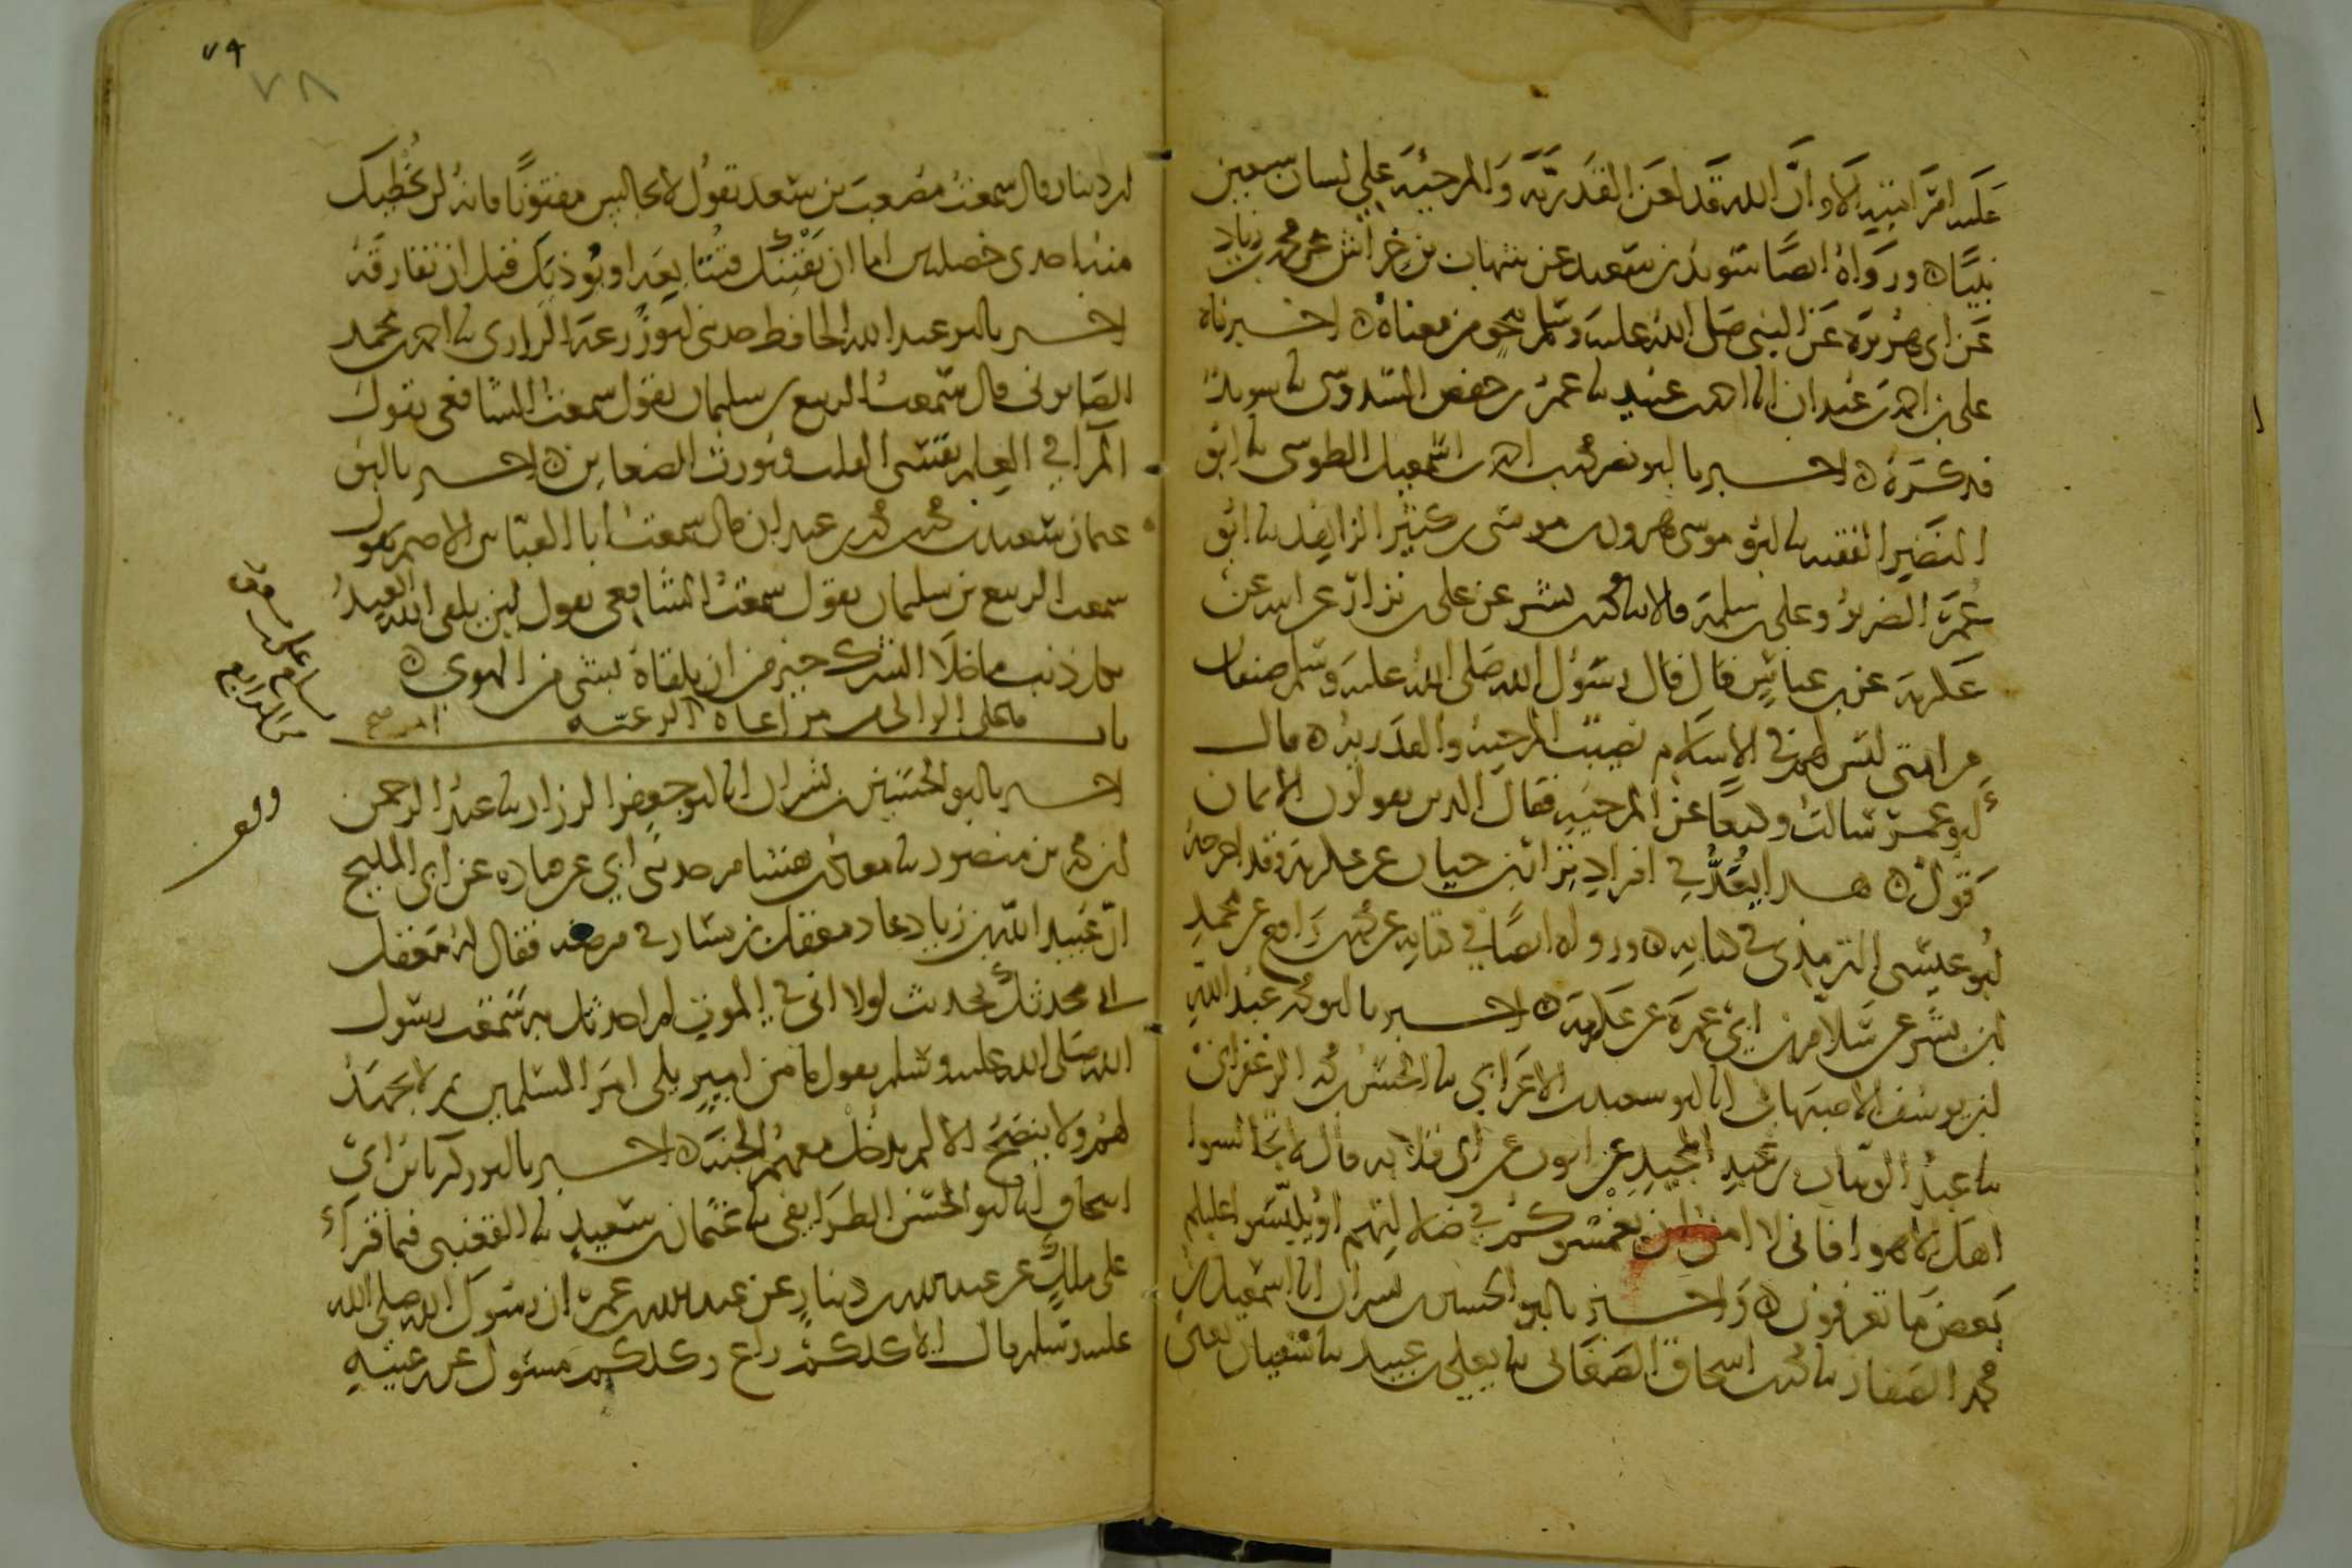 عليه امر امته الا وان الله قد لعن القدرية والمرجئة على لسان سبعين
نبيا ورواه ايضا سويد بن سعيد عن شهاب بن خراش عن محمد بن زياد
عن ابي هريرة عن النبي صلى الله عليه وسلم نحو من معناه اخبرناه
علي بن احمد بن عبدان انا احمد بن عبيد نا عمر بن حفص السدوسي نا سويد
فذكره اخبرنا ابو نصر محمد بن احمد بن اسمعيل الطوسي نا ابو
النضير الفقيه نا ابو موسى هرون بن موسى بن كثير الزاهد نا ابو
عمر الضرير وعلي بن سلمة قالا نا محمد بن بشر عن علي بن نزار عن ابيه عن
عكرمة عن بن عباس قال قال رسول الله صلى الله عليه وسلم صنفان
من امتي ليس لهم في الاسلام نصيب المرجية والقدرية قال
ابو عمر سالت وكيعا عن المرجية فقال الذين يقولون الايمان
قول هذا يعد في افراد نزار بن حيان عن عكرمة وقد اخرجه
ابو عيسى الترمذي في كتابه ورواه ايضا في كتابه عن محمد بن رافع عن محمد
بن بشر عن سلام بن ابي عمرة عن عكرمة اخبرنا ابو محمد عبد الله
ابن يوسف الاصبهاني انا ابو سعيد بن الاعرابي نا الحسن بن محمد الزعفراني
نا عبد الوهاب بن عبد المجيد عن ايوب عن ابي قلابة قال لا تجالسوا
اهل الاهواء فاني لا امن ان يغمسوكم في ضلالتهم او يلبسوا عليكم
بعض ما تعرفون واخبرنا ابو الحسين بن بشران انا اسمعيل بن
محمد الصفار نا محمد بن اسحاق الصغاني نا يعلى بن عبيد نا سفيان يعني
ابن دينار قال سمعت مصعب بن سعد يقول لا تجالس مفتونا فانه لن يخطيك
منه احدى خصلتين اما ان يفتنك فتتابعه او يؤذيك قبل ان تفارقه
اخبرنا ابو عبد الله الحافظ حدثني ابو زرعة الرازي نا احمد بن محمد
الصابوني قال سمعت الربيع بن سليمان يقول سمعت الشافعي يقول
المراء في العلم يقسي القلب ويورث الضغاين اخبرنا ابو
عثمان سعيد بن محمد بن محمد بن عبدان قال سمعت ابا العباس الاصم يقول
سمعت الربيع بن سليمان يقول سمعت الشافعي يقول لين يلقى الله العبد
بكل ذنب ما خلا الشرك خير من ان يلقاه بشي من الهوى
باب ما على الوالي من مراعاة الرعية
اخبرنا ابو الحسين بن بشران انا ابو جعفر الرزاز نا عبد الرحمن
ابن محمد بن منصور نا معاذ بن هشام حدثني ابي عن قتادة عن ابي المليح
ان عبيد الله بن زياد عاد معقل بن يسار في مرضه فقال له معقل
اني محدثك بحديث لولا اني في الموت لم احدثك به سمعت رسول
الله صلى الله عليه وسلم يقول ما من امير يلي امر المسلمين ثم لا يجهد
لهم ولا ينصح الا لم يدخل معهم الجنة اخبرنا ابو زكريا بن ابي
اسحاق انا ابو الحسن الطرايفي نا عثمان بن سعيد نا القعنبي فيما قرا
على ملك عن عبد الله بن دينار عن عبد الله بن عمر ان رسول الله صلى الله
عليه وسلم قال الا كلكم راع وكلكم مسئول عن رعيته
٧٩
٧٨